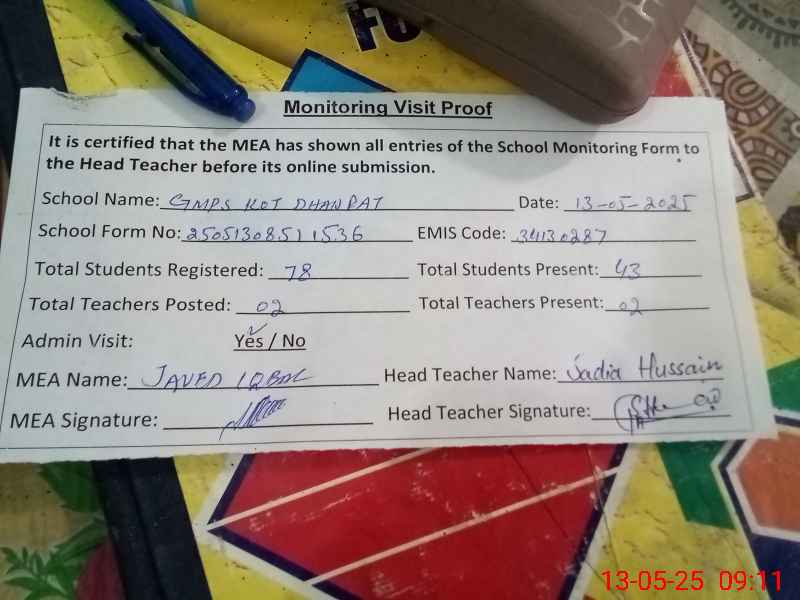 FU
Monitoring Visit Proof
It is certified that the MEA has shown all entries of the School Monitoring Form to
the Head Teacher before its online submission.
School Name: GMPS KOT DHANPAT Date: 13-05-2025
School Form No: 25051308511536 EMIS Code: 34130287
Total Students Registered: 78 Total Students Present: 43
Total Teachers Posted: 02 Total Teachers Present: 02
Admin Visit: Yes / No
MEA Name: JAVED IQBAL Head Teacher Name: Sadia Hussain
MEA Signature: Head Teacher Signature:
13-05-25 09:11